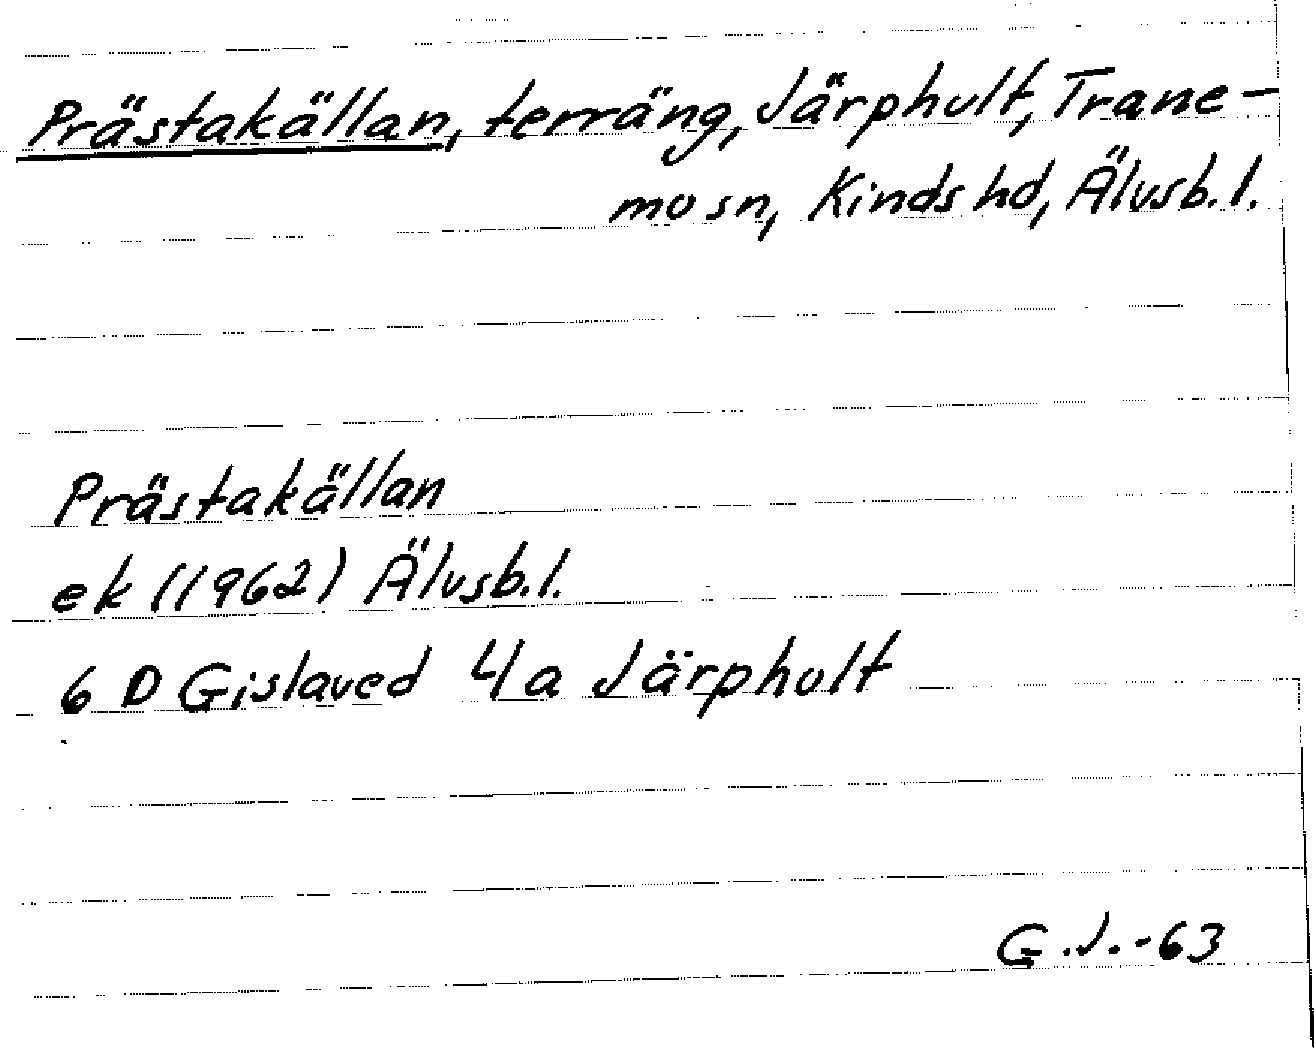 Prästakällan, terräng, Järphult, Trane-
mo sn, Kinds hd, Älvsb. l.
Prästakällan
ek (1962) Älvsb.l.
6 D Gislaved 4a Järphult
G.J.-63